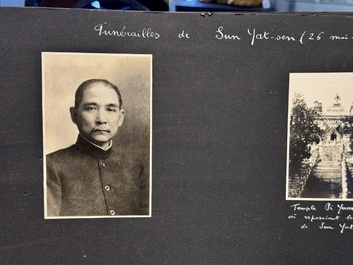 Funérailles de Sun Yat-sen (26 mai
Temple Pi Yuen
où reposaient le
de Sun Yat